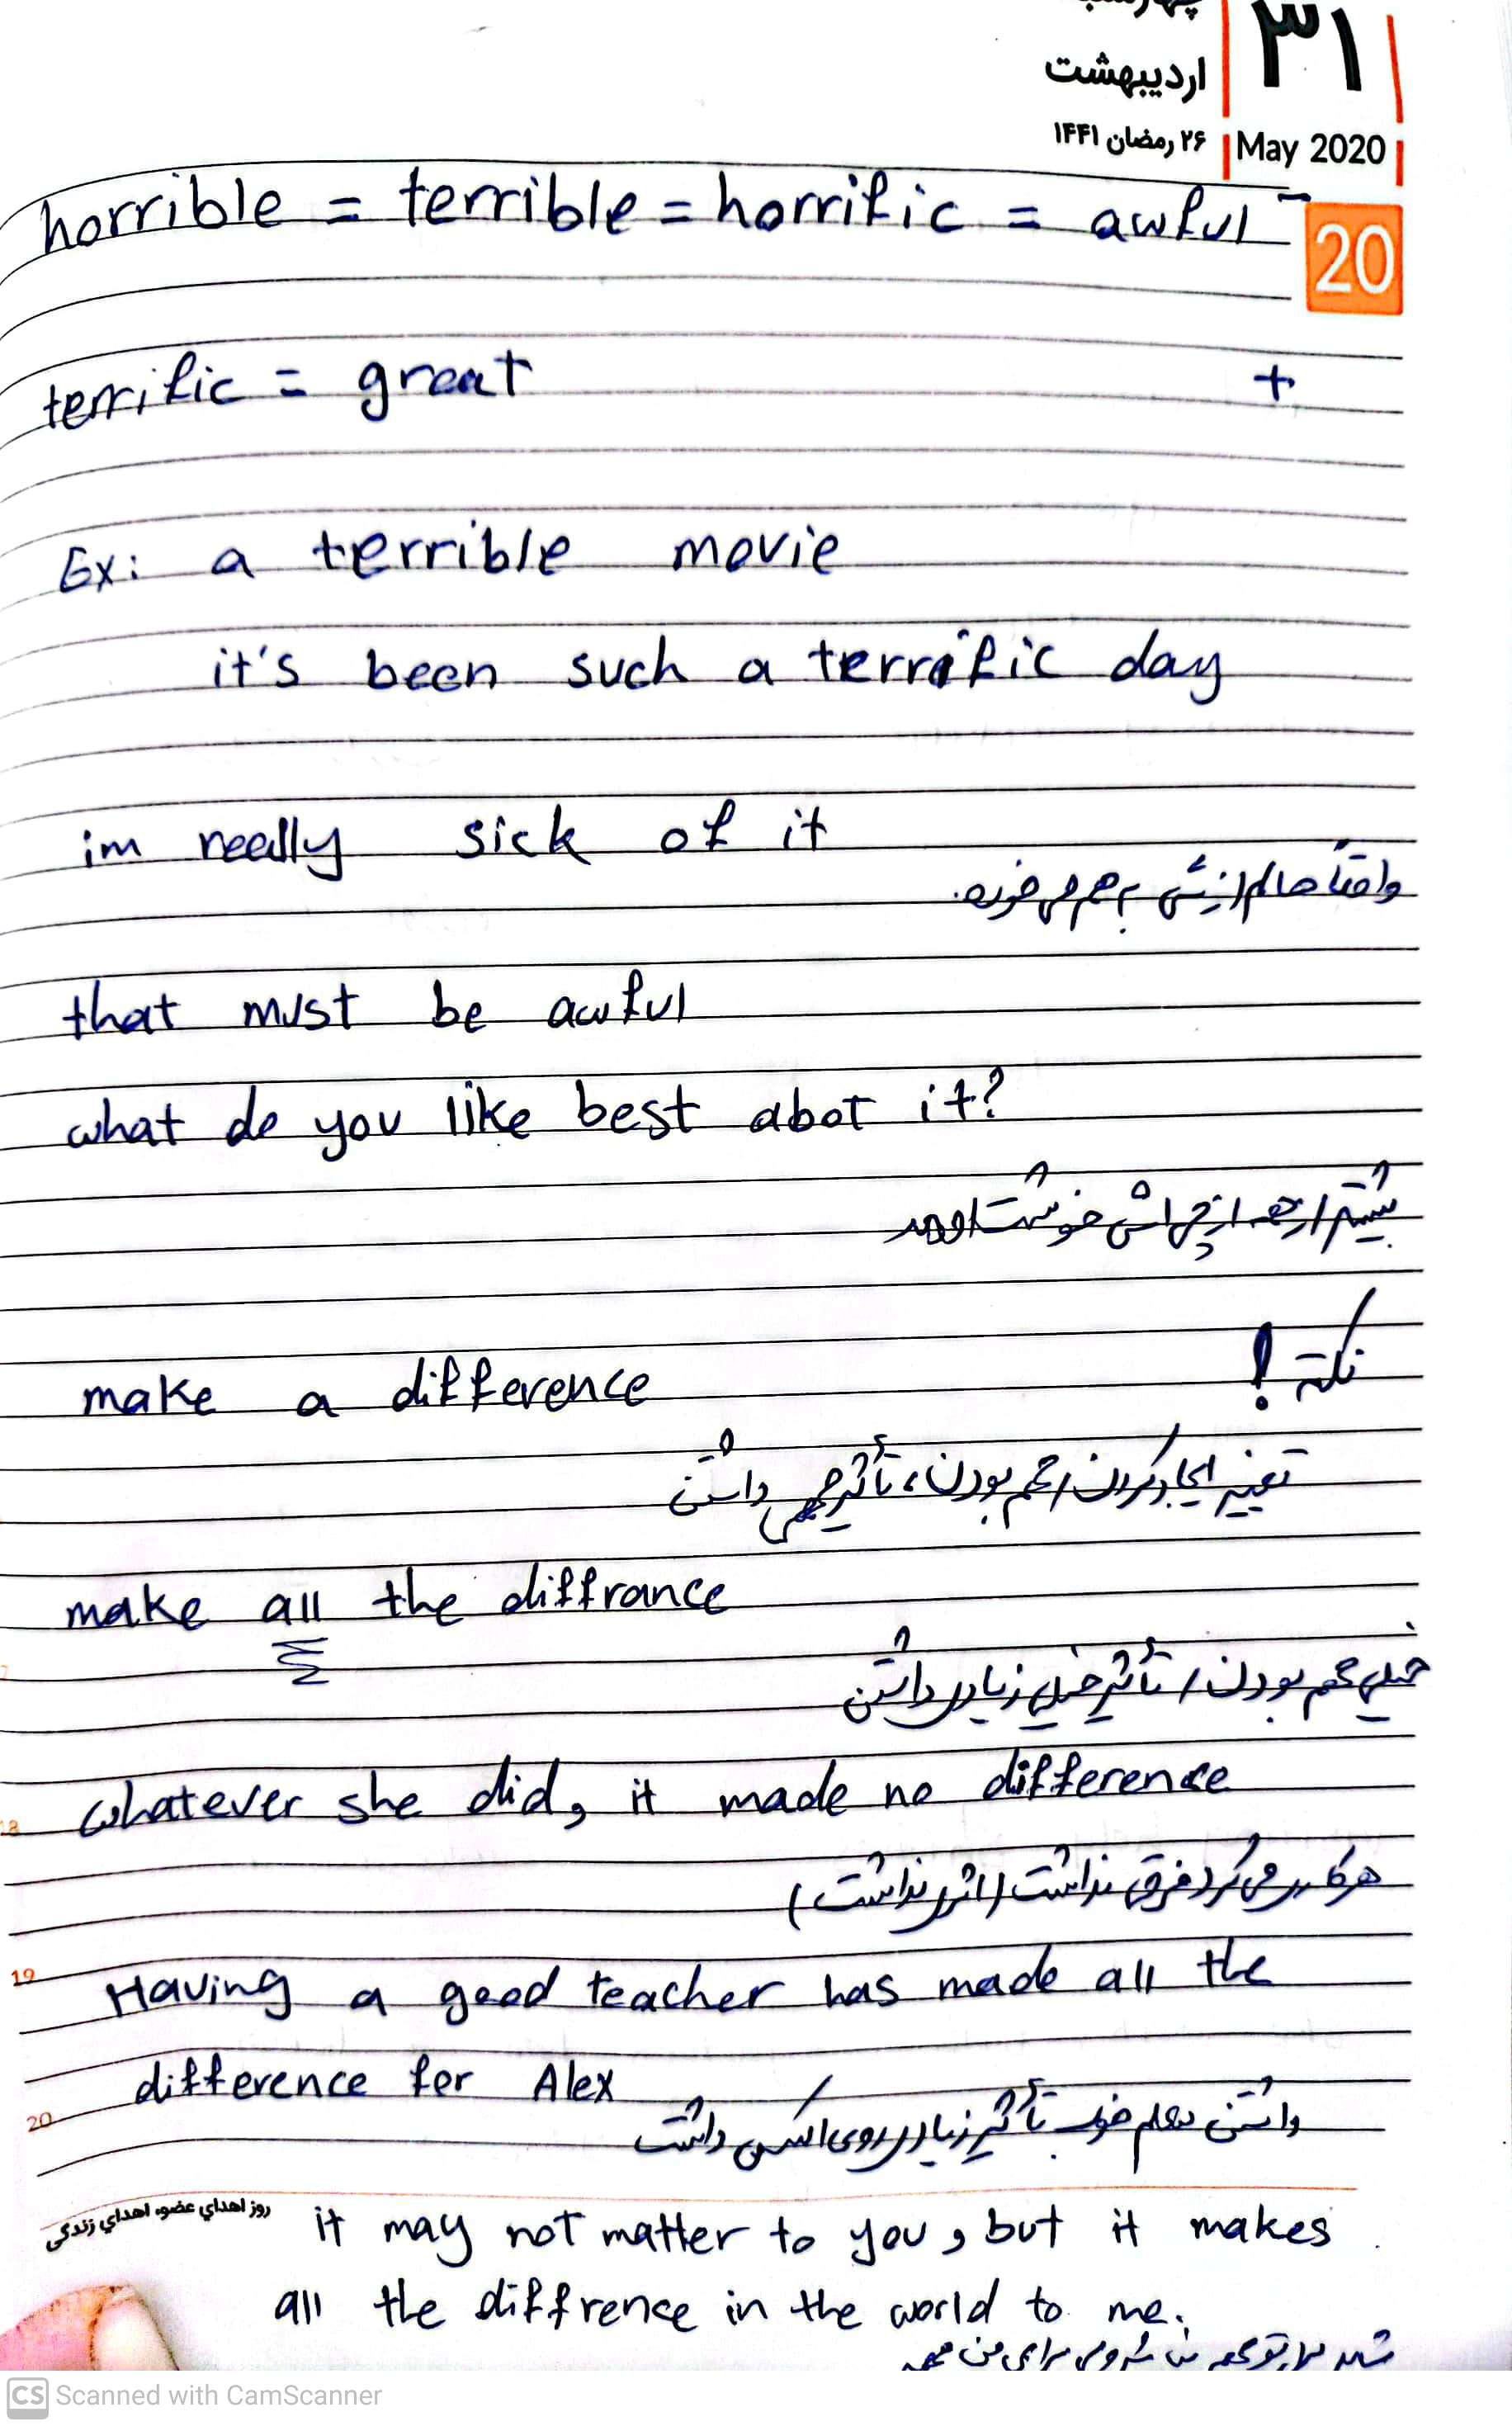 ۳۱
اردیبهشت
۲۶ رمضان ۱۴۴۱
May 2020
20
horrible = terrible = horrific = awful -
terrific = great +
Ex: a terrible movie
it's been such a terrific day
im really sick of it
واقعاً حالم از بهم می خوره.
that must be awful
what do you like best abot it?
بیشتر از همه از چی اش خوشت اومد
make a difference
نکته!
تغییر ایجاد کردن / مهم بودن، تأثیر مهمی داشتن
make all the diffrance
خیلی مهم بودن / تأثیر خیلی زیادی داشتن
whatever she did, it made no difference
18
هر کاری می کرد فرقی نداشت (اثری نداشت)
19
Having a good teacher has made all the
difference for Alex
20
داشتن معلم خوب تأثیر زیادی روی الکس داشت
روز اهدای عضو، اهدای زندگی
it may not matter to you, but it makes
all the diffrence in the world to me.
شاید برای تو مهم نباشه ولی برای من مهمه
CS Scanned with CamScanner